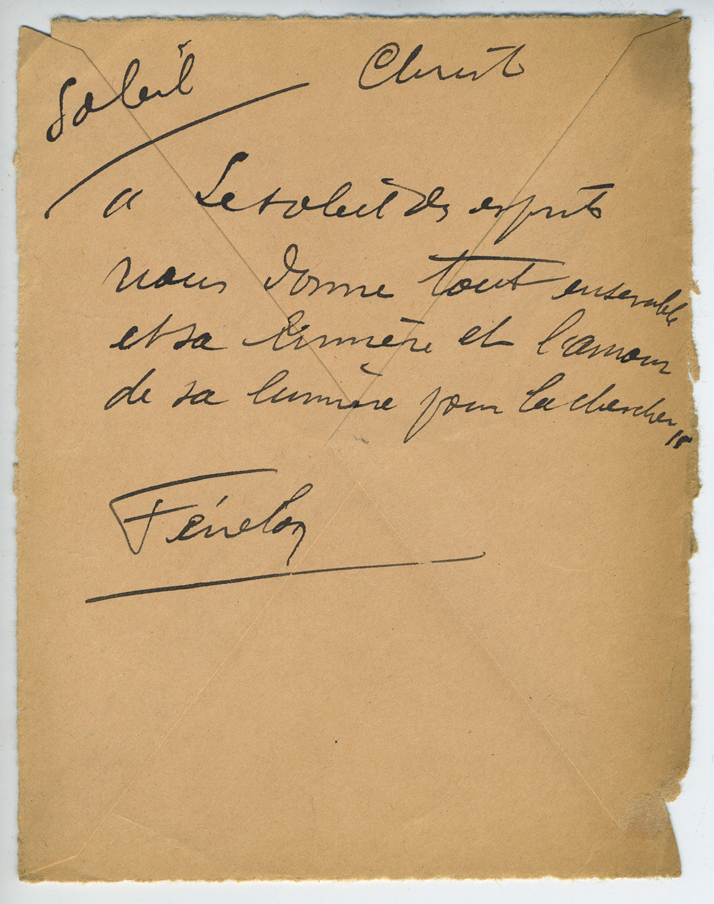 Soleil Christ
" Le soleil des esprits
nous donne tout ensemble
et sa lumière et l'amour
de sa lumière pour la chercher "
Fénelon